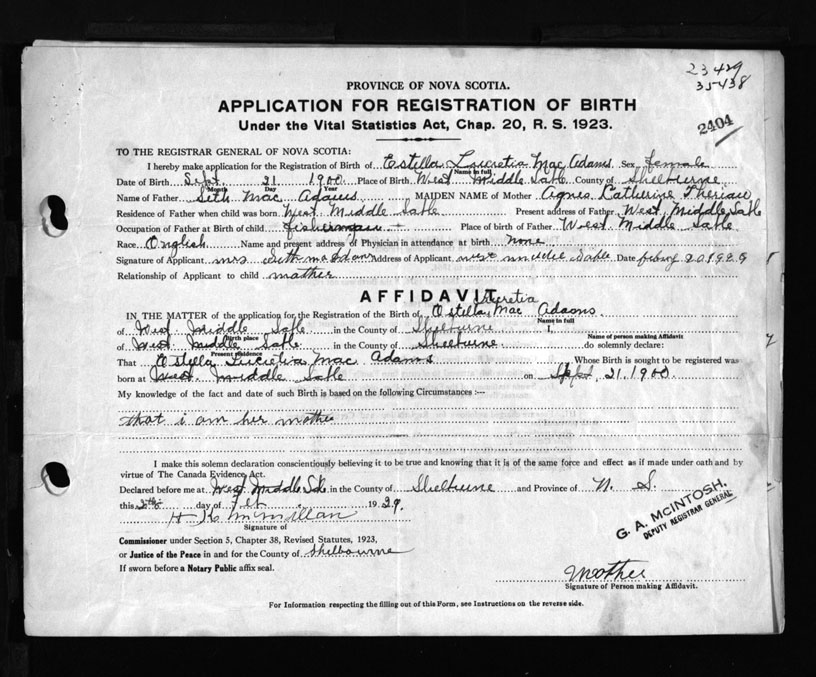 23429
35438
2404
PROVINCE OF NOVA SCOTIA.
APPLICATION FOR REGISTRATION OF BIRTH
Under the Vital Statistics Act, Chap. 20, R. S. 1923.
TO THE REGISTRAR GENERAL OF NOVA SCOTIA:
I hereby make application for the Registration of Birth of Estella Lucretia Mac Adams Sex female
Name in full
Date of Birth Sept 21 1900. Place of Birth West Middle Sable County of Shelburne
Month Day Year
Name of Father Seth Mac Adams MAIDEN NAME of Mother Agnes Catherine Theriau
Residence of Father when child was born West Middle Sable Present address of Father West Middle Sable
Occupation of Father at Birth of child fisherman Place of birth of Father West Middle Sable
Race English Name and present address of Physician in attendance at birth none
Signature of Applicant mrs Seth macAdams Address of Applicant west middle Sable Date 20 1929
Relationship of Applicant to child mother
AFFIDAVIT
Lucretia
IN THE MATTER of the application for the Registration of the Birth of Estella Mac Adams.
Name in full
of West Middle Sable in the County of Shelburne I,
Birth place Name of person making Affidavit
of West Middle Sable in the County of Shelburne do solemnly declare:
Present residence
That Estella Lucretia Mac Adams Whose Birth is sought to be registered was
born at West middle Sable on Sept, 21. 1900.
My knowledge of the fact and date of such Birth is based on the following Circumstances :—
that i am her mother
I make this solemn declaration conscientiously believing it to be true and knowing that it is of the same force and effect as if made under oath and by
virtue of The Canada Evidence Act.
Declared before me at West Middle Sable in the County of Shelburne and Province of N. S.
this day of Feb 1929.
H K McMillan
Signature of
Commissioner under Section 5, Chapter 38, Revised Statutes, 1923,
or Justice of the Peace in and for the County of Shelbourne
If sworn before a Notary Public affix seal.
G. A. McINTOSH,
DEPUTY REGISTRAR GENERAL
Mother
Signature of Person making Affidavit.
For Information respecting the filling out of this Form, see Instructions on the reverse side.